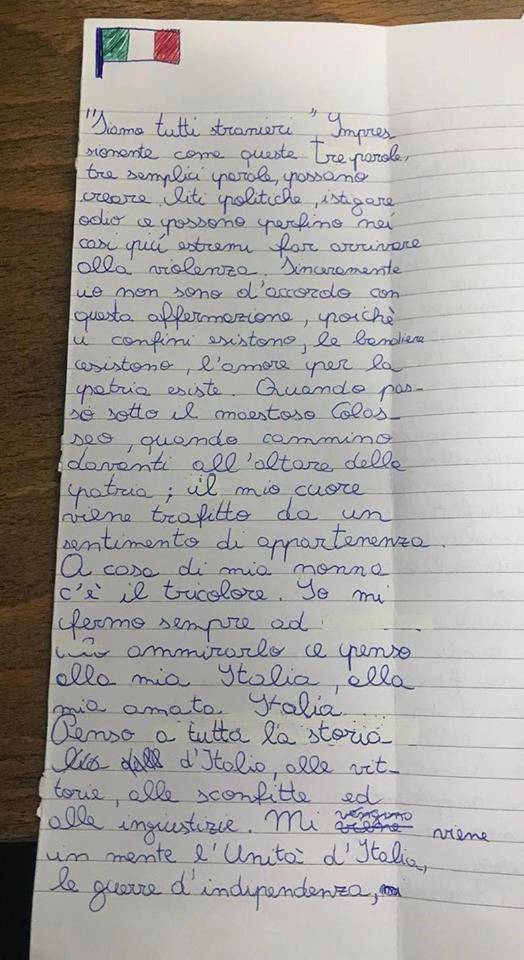 "Siamo tutti stranieri" Impres
sionante come queste tre parole,
tre semplici parole, possano
creare liti politiche, istigare
odio e possono perfino nei
casi più estremi far arrivare
alla violenza. Sinceramente
io non sono d'accordo con
questa affermazione, poichè
i confini esistono, le bandiere
esistono, l'amore per la
patria esiste. Quando pas-
so sotto il maestoso Colos-
seo, quando cammino
davanti all'altare della
patria; il mio cuore
viene trafitto da un
sentimento di appartenenza.
A casa di mia nonna
c'è il tricolore. Io mi
fermo sempre ad
ammirarlo e penso
alla mia Italia, alla
mia amata Italia
Penso a tutta la storia
d'Italia, alle vit-
torie, alle sconfitte ed
alle ingiustizie. Mi viene
in mente l'Unità d'Italia,
le guerre d'indipendenza,